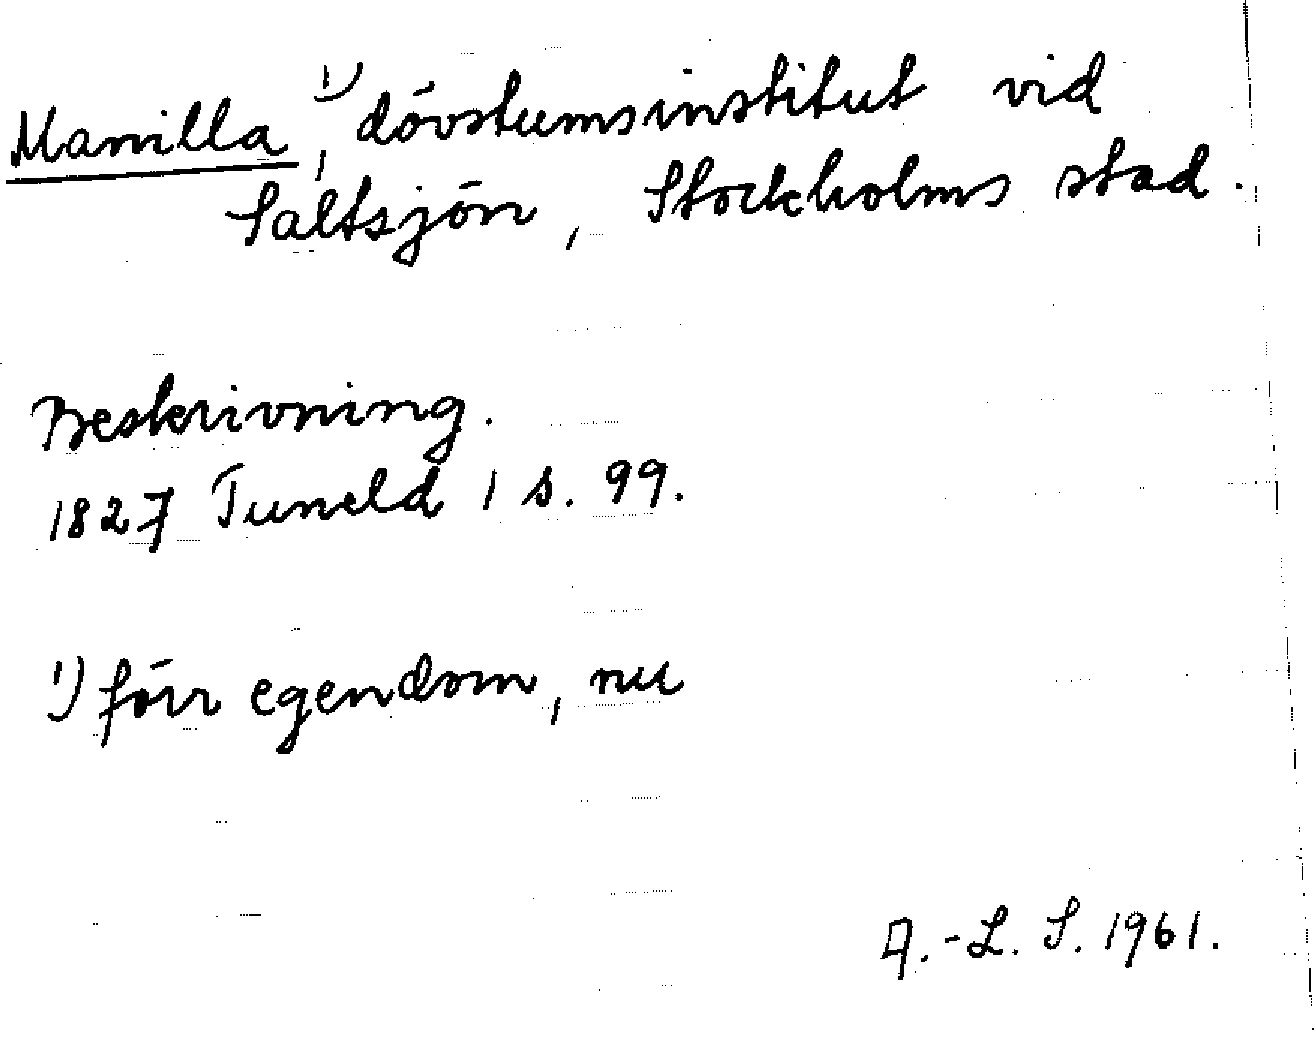 Manilla, ¹⁾ dövstumsinstitut vid
Saltsjön, Stockholms stad.
Beskrivning.
1827 Tuneld 1 s. 99.
¹⁾ förr egendom, nu
A.-L. S. 1961.